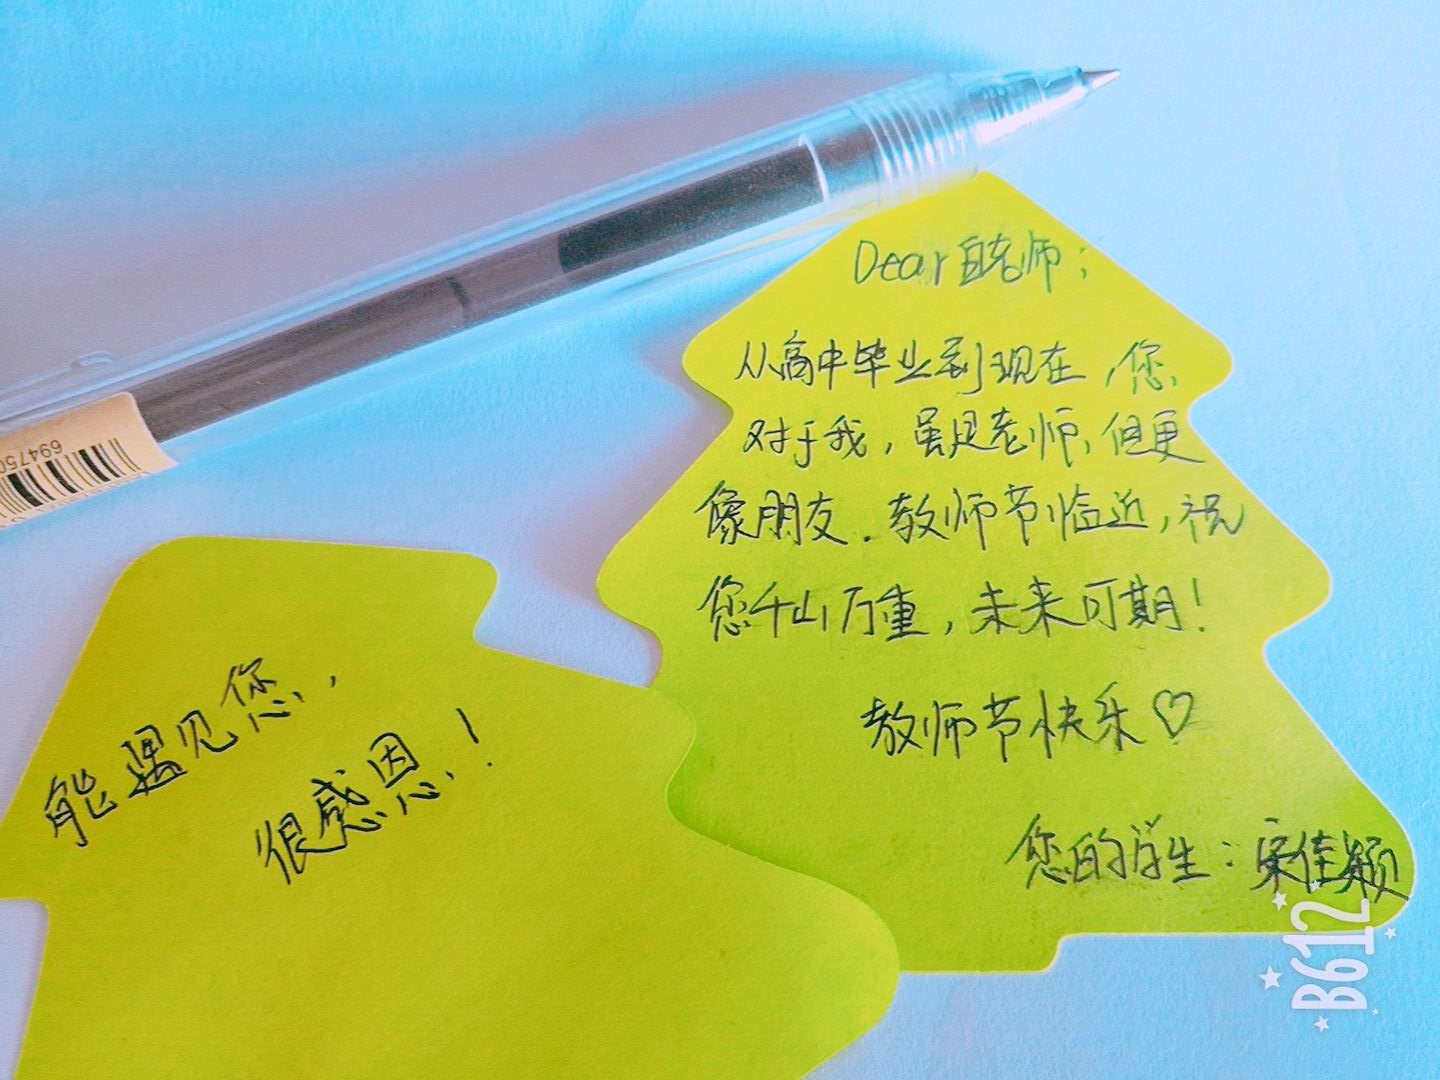 Dear 白老师：
从高中毕业到现在，您
对于我，虽是老师，但更
像朋友．教师节临近，祝
您千山万重，未来可期！
教师节快乐♡
您的学生：宋佳颖
能遇见您，
很感恩！
B612